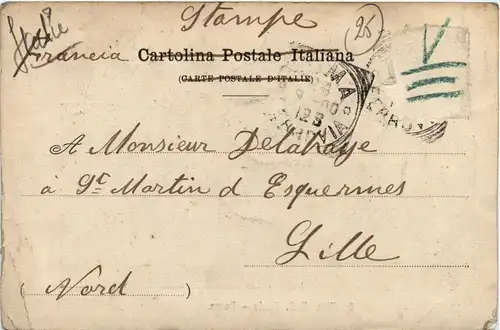 Stampe
26
Italie
Francia
Cartolina Postale Italiana
(CARTE POSTALE D'ITALIE)
ROMA
FERROVIA
FERROV
A Monsieur Delahaye
à St Martin d Esquermes
Lille
(Nord)